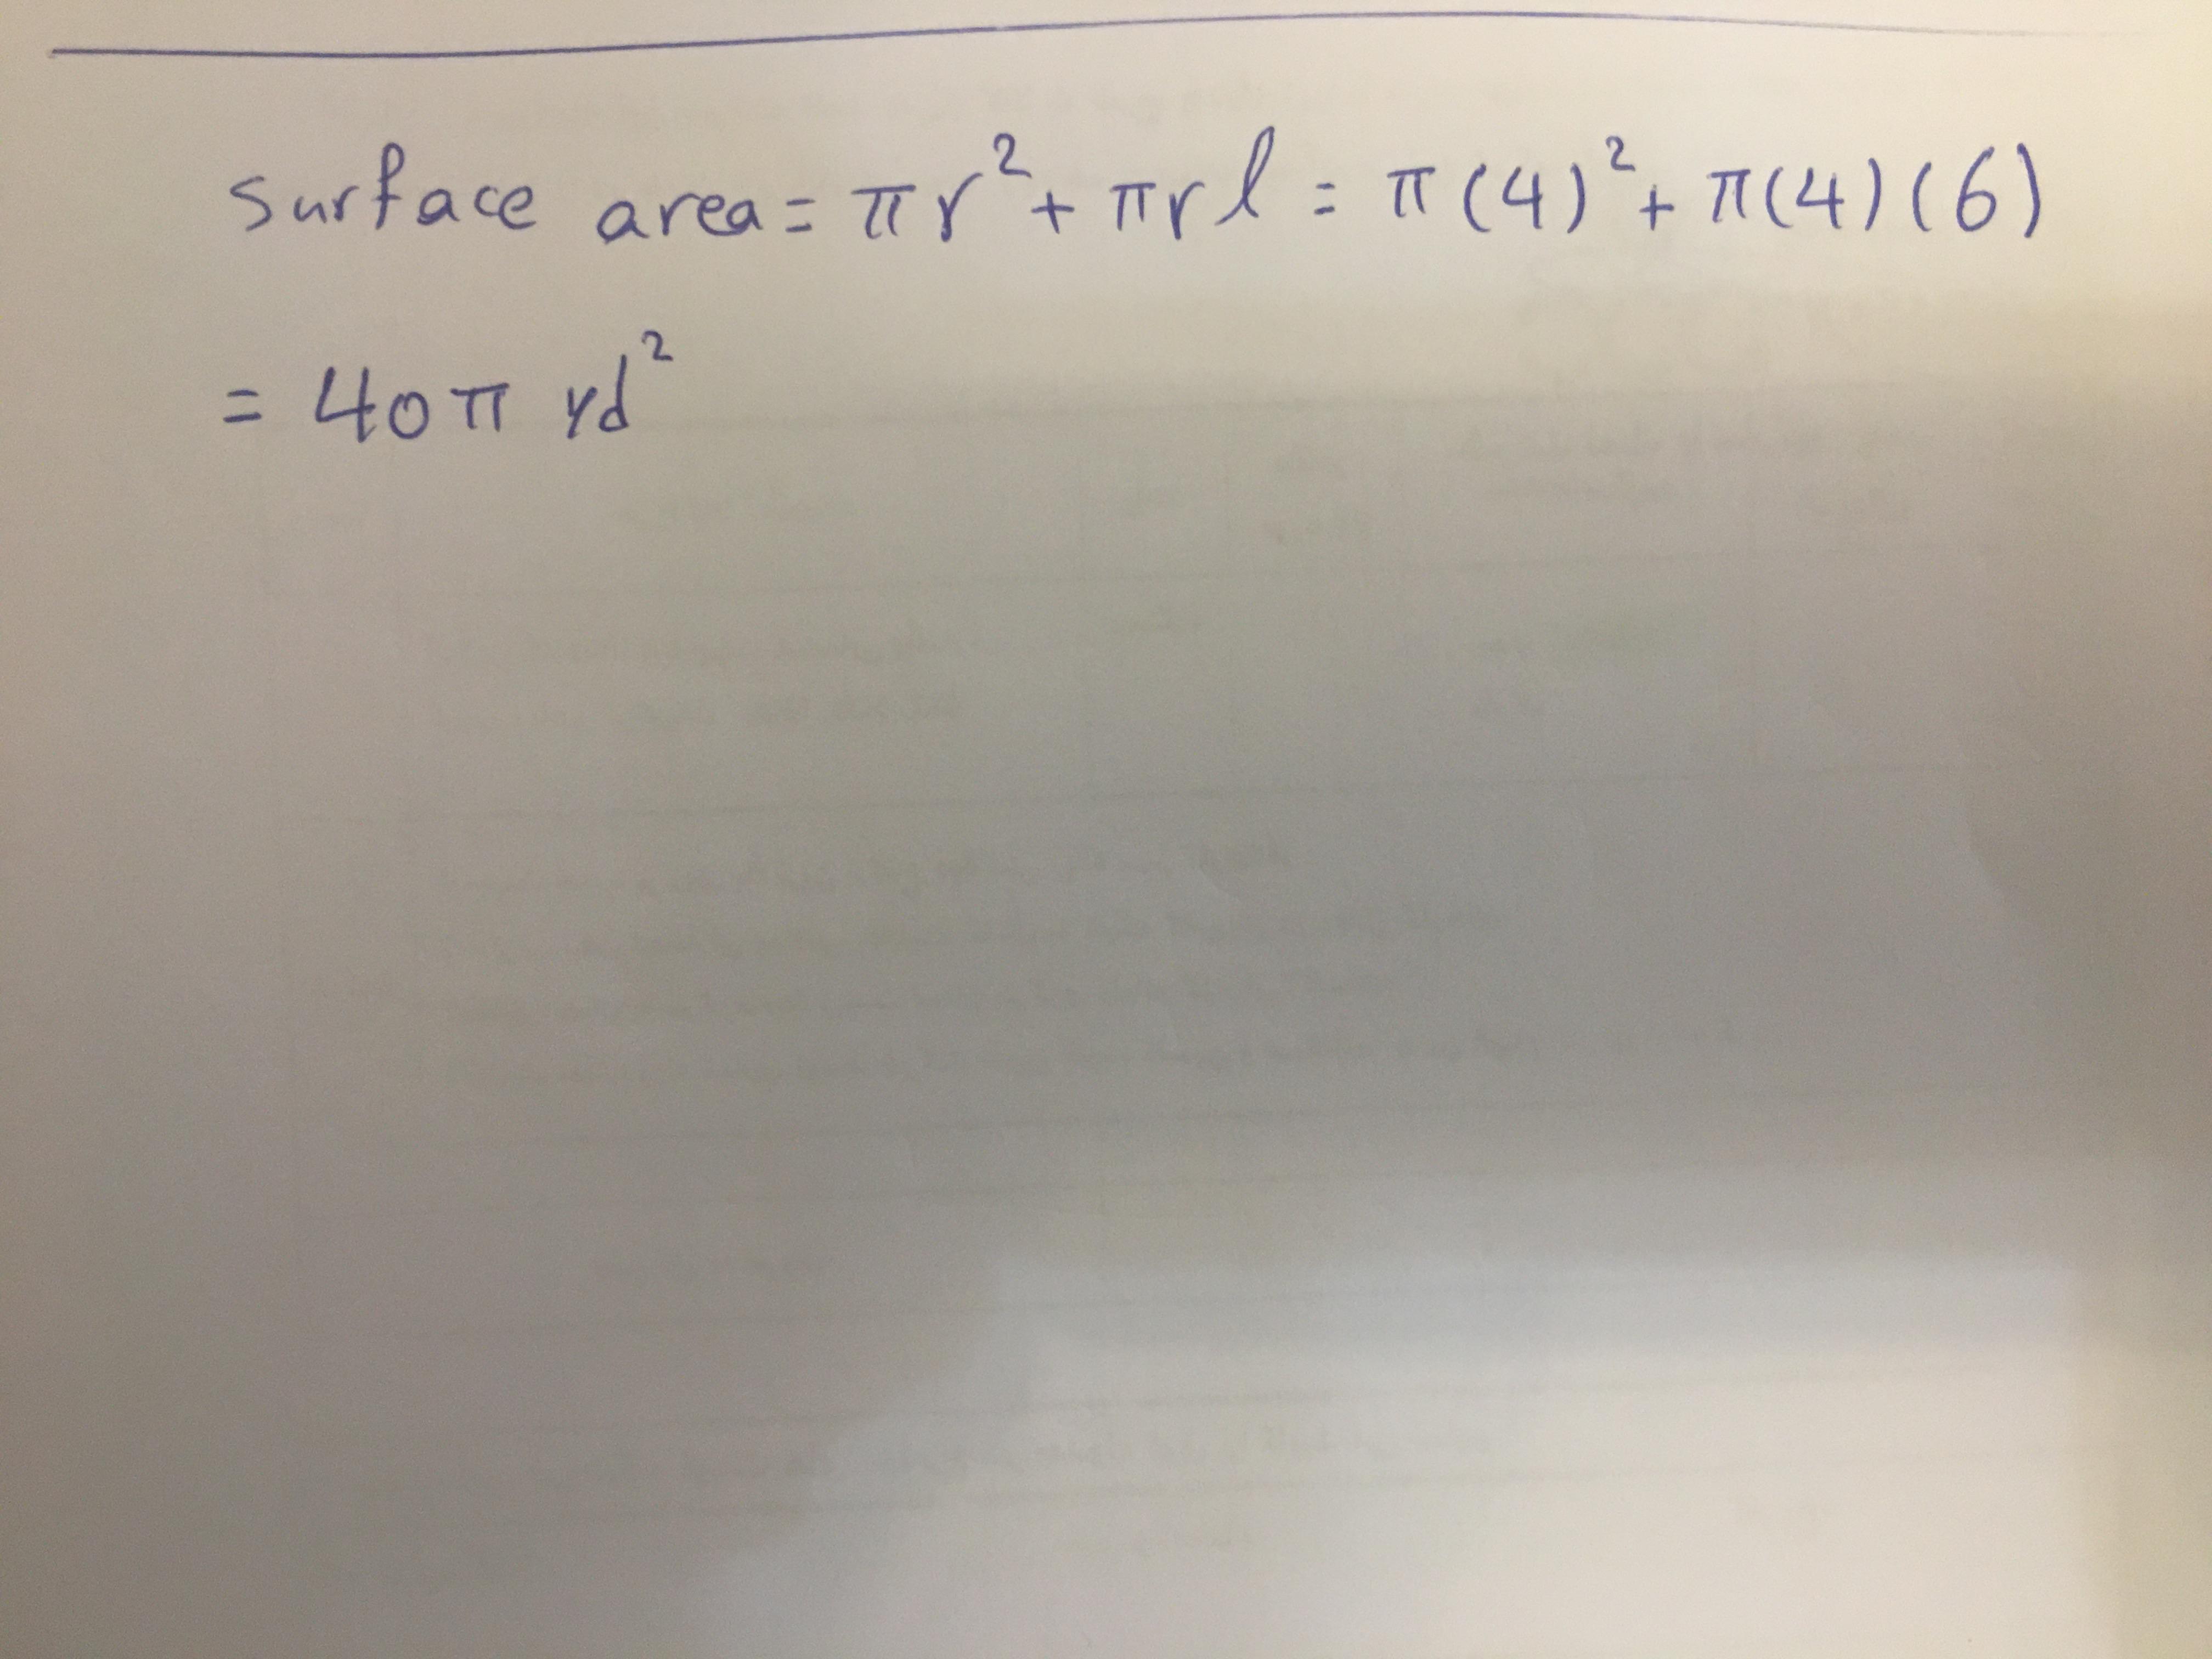 surface area = πr² + πrl = π(4)² + π(4)(6)
= 40π yd²